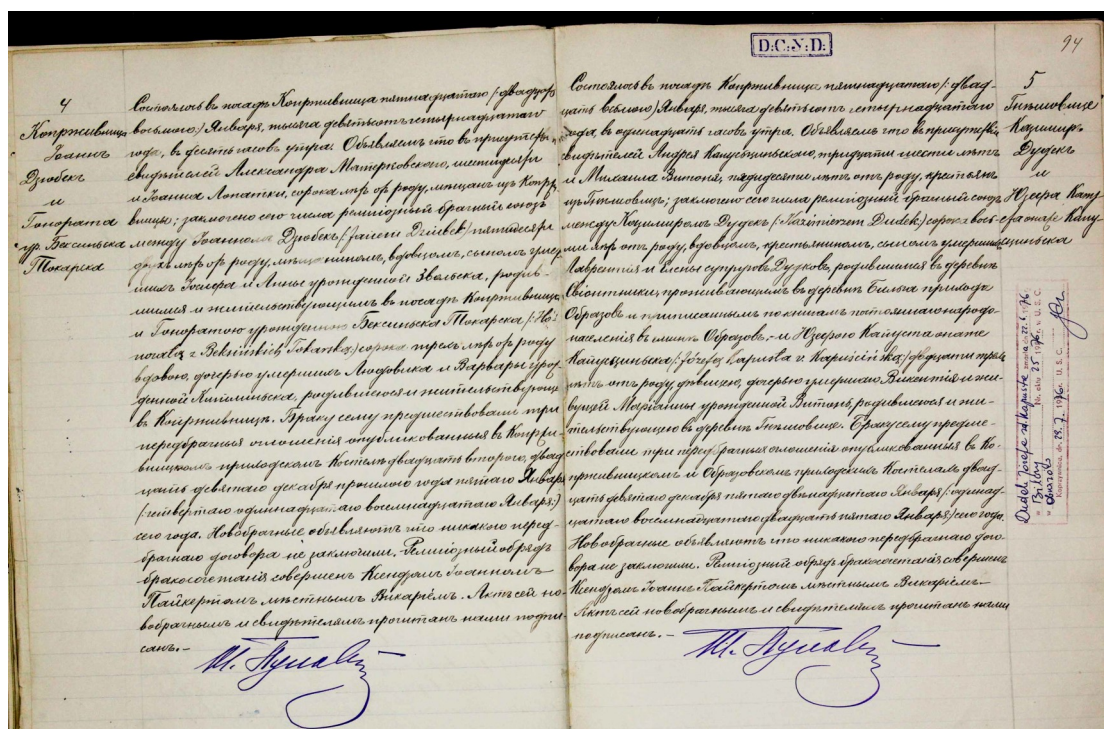 4
Копрживница
Іоаннъ
Дзюбекъ
и
Гонората
ур. Бексиньска
Токарска
Состоялось въ посадѣ Копрживница пятнадцатаго /:двадцать
восьмого:/ Января, тысяча девятьсотъ четырнадцатаго
года, въ десять часовъ утра. Объявляемъ что въ присутствіи
свидѣтелей Александра Матерковскаго, шестидесяти
и Іоанна Лопатки, сорока лѣтъ отъ роду, мѣщанъ изъ Копр-
вницы; заключено сего числа религіозный брачный союзъ
между Іоанномъ Дзюбекъ /: Janem Dziubek:/ пятидесяти
двухъ лѣтъ отъ роду, мѣщаниномъ, вдовцомъ, сыномъ умер-
шихъ Іосифа и Анны урожденной Звольска, родив-
шимся и жительствующимъ въ посадѣ Копрживница,
и Гоноратою урожденною Бексиньска Токарска /: Ho-
noratą z Beksińskich Tokarską:/ сорока трехъ лѣтъ отъ роду
вдовою, дочерью умершихъ Людовика и Варвары уро-
жденной, родившеюся и жительствующею
въ Копрживницѣ. Браку сему предшествовали три
передбрачныя оглашенія опубликованныя въ Копржи-
вницкомъ приходскомъ Костелѣ двадцать второго, двад-
цать девятаго декабря прошлаго года пятаго Января
/: четвертаго одинадцатаго восемнадцатаго Января:/
сего года. Новобрачные объявляютъ что никакого перед-
брачнаго договора не заключили. Религіозный обрядъ
бракосочетанія совершенъ Ксендзомъ Іоанномъ
Пайкертомъ мѣстнымъ Викаріемъ. Актъ сей но-
вобрачнымъ и свидѣтелямъ прочитанъ нами подпи-
санъ. –
D:C:N:D:
94
5
Гнѣшовице
Казимиръ
Дудекъ
и
Юзефа Капу-
ста онаже Капу-
сциньска
Состоялось въ посадѣ Копрживница пятнадцатаго /: двад-
цать восьмого:/ Января, тысяча девятьсотъ четырнадцатаго
года, въ одинадцать часовъ утра. Объявляемъ что въ присутствіи
свидѣтелей Андрея Капусциньскаго, тридцати шести лѣтъ
и Михаила Витонь, пядидесяти лѣтъ отъ роду, крестьянъ
изъ Гнѣшовицъ; заключено сего числа религіозный брачный союзъ
между Казимиромъ Дудекъ /: Kazimierzem Dudek:/ сорока вось-
ми лѣтъ отъ роду, вдовцомъ, крестьяниномъ, сыномъ умершихъ
Лаврентія и Елены супруговъ Дудковъ, родившимся въ деревнѣ
Свіонтники, проживающимъ въ деревнѣ Бильча прихода
Образовъ и приписаннымъ по книгамъ постояннаго народо-
населенія въ гминѣ Образовъ, – и Юзефою Капуста онаже
Капусциньска /: Józefą Kapusta v. Kapuścińską:/ двадцати трехъ
лѣтъ отъ роду, дѣвицею, дочерью умершаго Викентія и жи-
вущей Маріанны урожденной Витонь, родившеюся и жи-
тельствующею въ деревнѣ Гнѣшовице. Браку сему предше-
ствовали три передбрачныя оглашенія опубликованныя въ Ко-
прживницкомъ и Образовскомъ приходскихъ Костелахъ двад-
цать девятаго декабря пятаго двѣнадцатаго Января /: одинад-
цатаго восемнадцатаго двадцать пятаго Января:/ сего года.
Новобрачные объявляютъ что никакого передбрачнаго дого-
вора не заключили. Религіозный обрядъ бракосочетанія совершенъ
Ксендзомъ Іоаннъ Пайкертомъ мѣстнымъ Викаріемъ –
Актъ сей новобрачнымъ и свидѣтелямъ прочитанъ нами
подписанъ. –
Dudek Józefa zd. Kapusta zmarła dnia 22.6.1976
w Bilczy Nr. aktu 25 1976 r. U. S. C.
w Obrazów
Koprzywnica, dn. 29.7.1976 r. U. S. C.